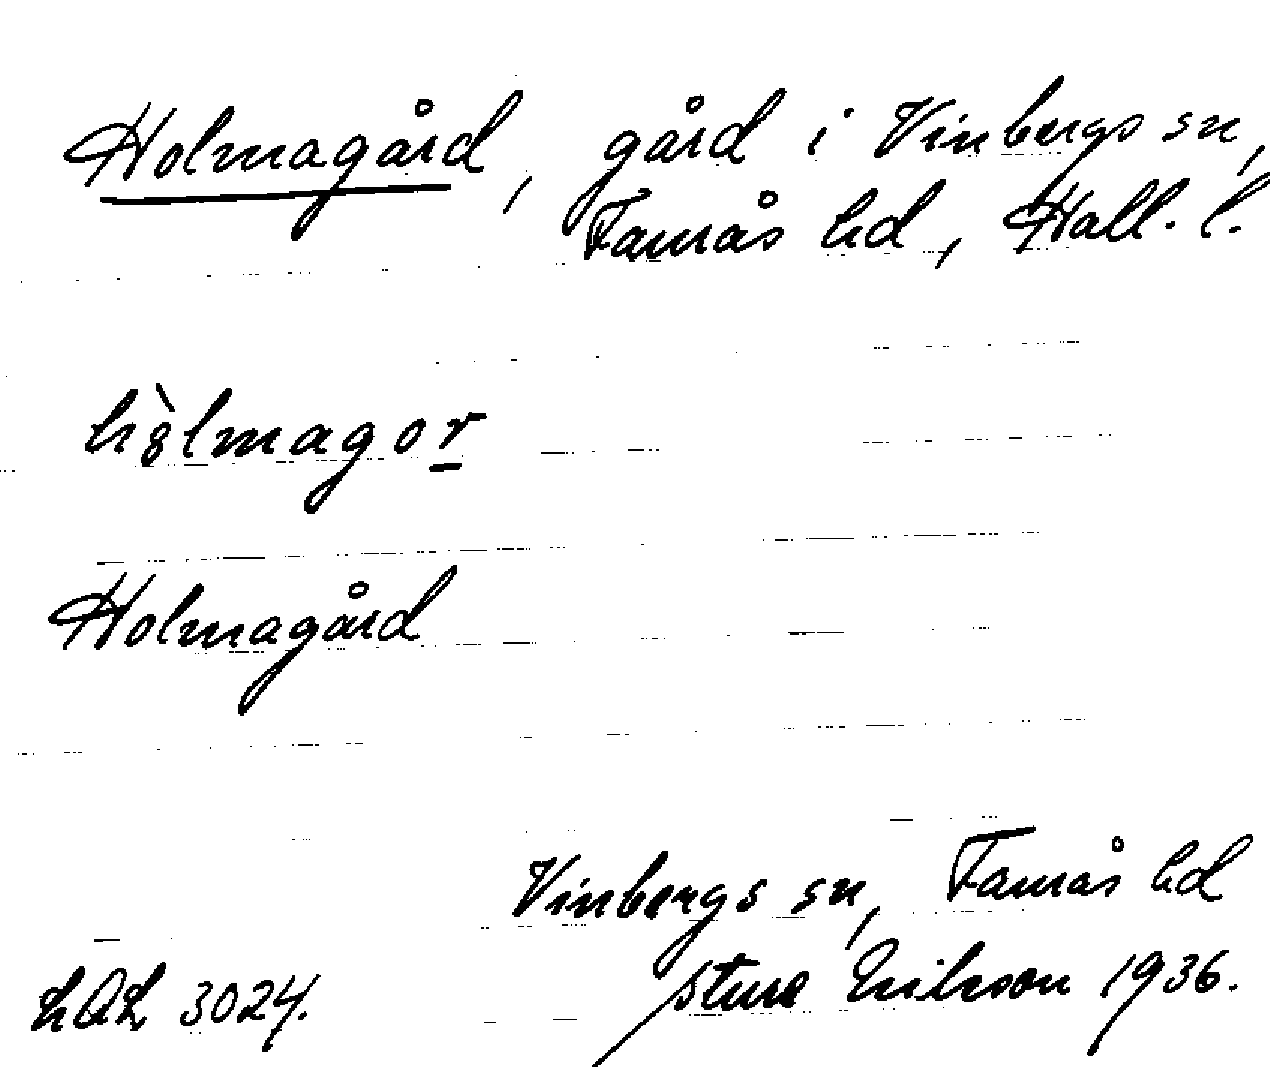 Holmagård, gård i Vinbergs sn,
Faurås hd, Hall. l.
hòlmagor
Holmagård
Vinbergs sn, Faurås hd
LAL 3024. Sture Erikson 1936.